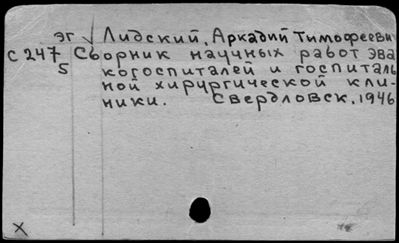 эг √ Лидский, Аркадий Тимофееви
С 247 Сборник научных работ эва
5 когоспиталей и госпиталь
ной хирургической кли-
ники. Свердловск, 1946
X